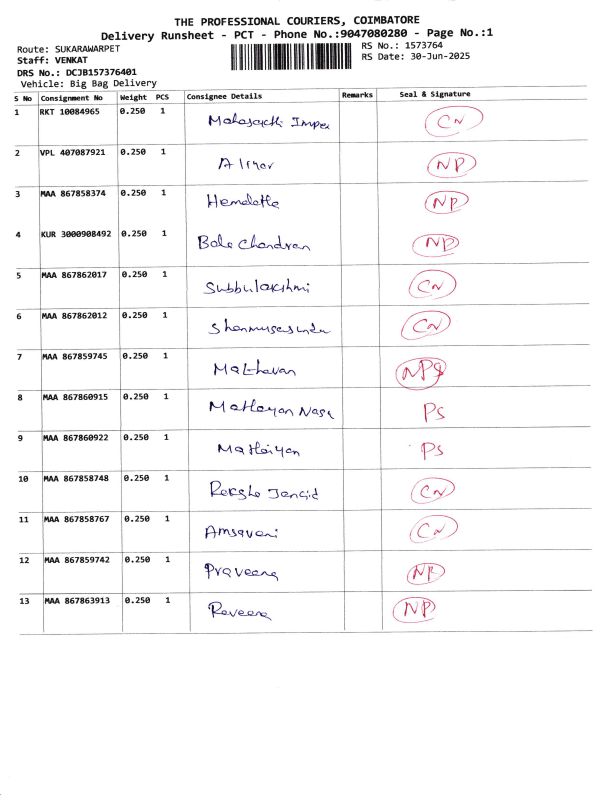 THE PROFESSIONAL COURIERS, COIMBATORE
Delivery Runsheet - PCT - Phone No.:9047080280 - Page No.:1
Route: SUKARAWARPET
RS No.: 1573764
Staff: VENKAT
RS Date: 30-Jun-2025
DRS No.: DCJB157376401
Vehicle: Big Bag Delivery
S No Consignment No Weight PCS Consignee Details Remarks Seal & Signature
1 RKT 10084965 0.250 1 Impex CN
2 VPL 407087921 0.250 1 NP
3 MAA 867858374 0.250 1 Hemalatha NP
4 KUR 3000908492 0.250 1 Bala Chandran NP
5 MAA 867862017 0.250 1 Subbulakshmi CN
6 MAA 867862012 0.250 1 CN
7 MAA 867859745 0.250 1 Mathavan NPS
8 MAA 867860915 0.250 1 PS
9 MAA 867860922 0.250 1 Mathaiyan PS
10 MAA 867858748 0.250 1 CN
11 MAA 867858767 0.250 1 Amsaveni CN
12 MAA 867859742 0.250 1 Praveena NP
13 MAA 867863913 0.250 1 Raveena NP